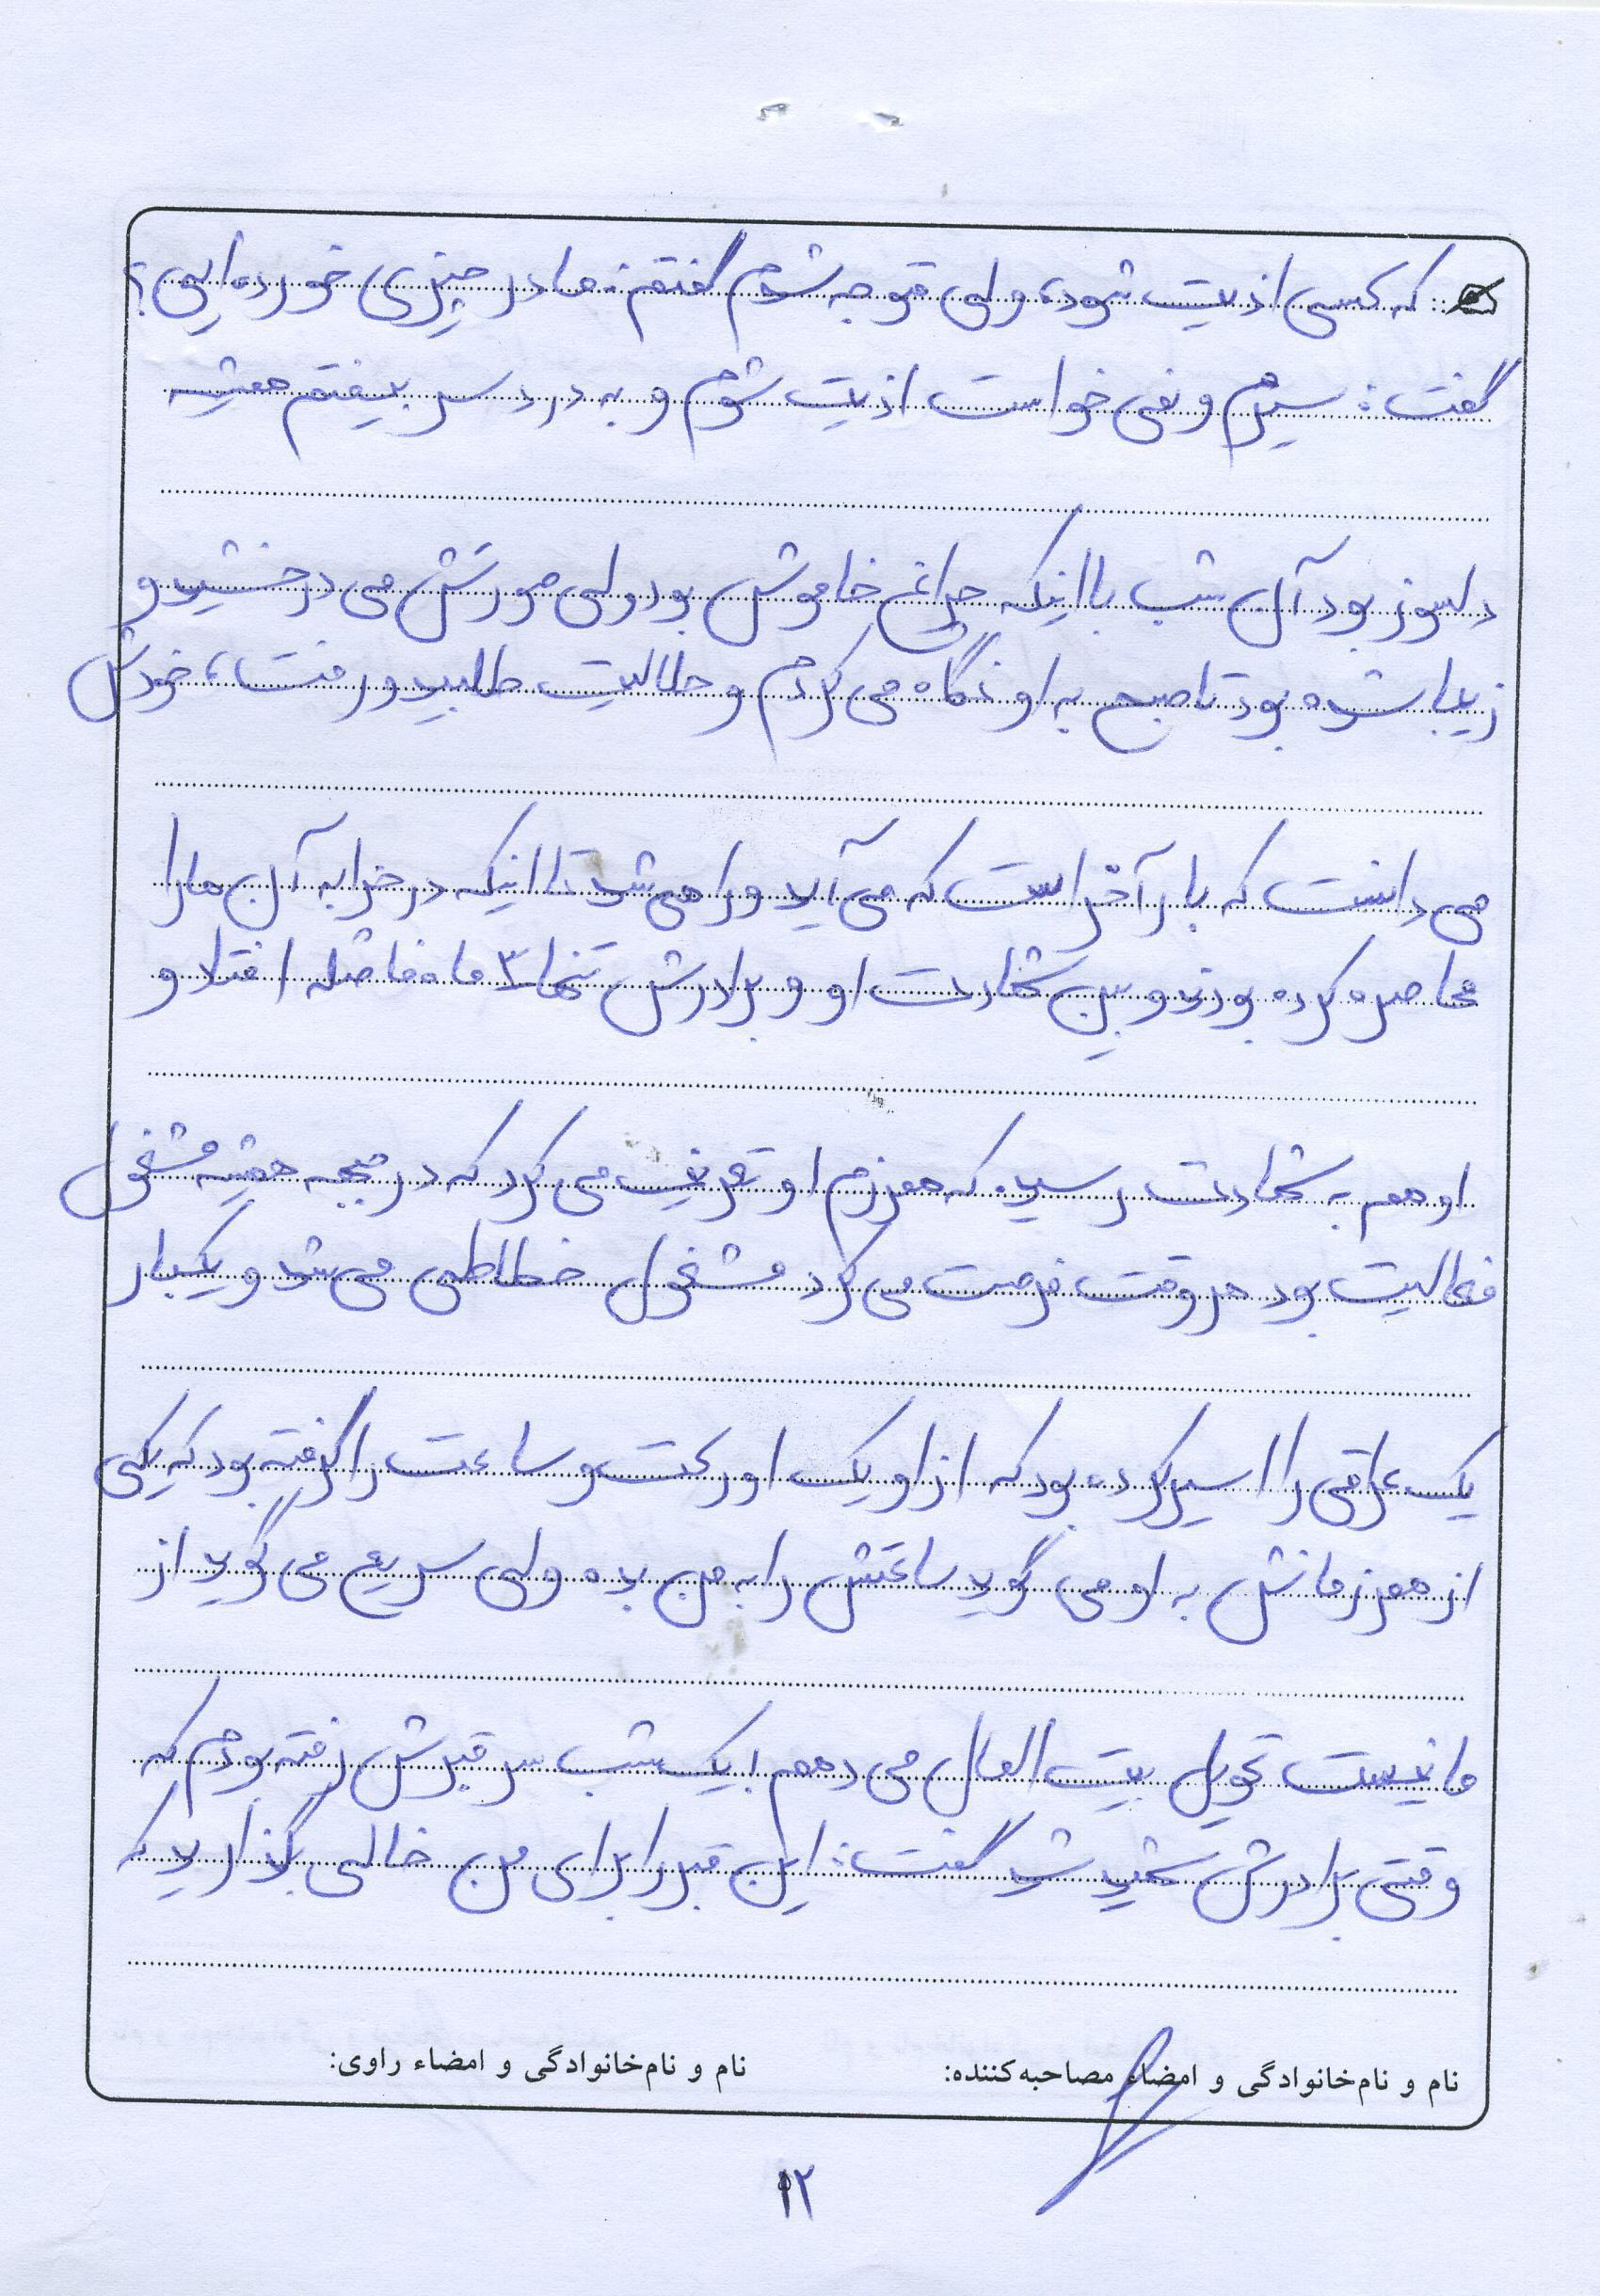 که کسی اذیت شود، ولی متوجه شدم گفتم: مادر چیزی خورده‌ایی؟
گفت: سیرم و نمی خواست اذیت شوم و به دردسر بیفتم همیشه
دلسوز بود آن شب با اینکه چراغ خاموش بود ولی صورتش می درخشید و
زیبا شده بود تا صبح به او نگاه می کردم و حلالیت طلبید و رفت، خودش
می دانست که بار آخر است که می آید و راهی شد تا اینکه در خرابه آن ما را
محاصره کرده بودند و بین شهادت او و برادرش تنها ۳ ماه فاصله افتاد و
او هم به شهادت رسید. که همرزم او تعریف می کرد که در جبهه همیشه مشغول
فعالیت بود هر وقت فرصت می کرد مشغول خطاطی می شد و یکبار
یک عراقی را اسیر کرده بود که از او یک اورکت و ساعت را گرفته بود که یکی
از همرزمانش به او می گوید ساعتش را به من بده ولی سریع می گوید از
ما نیست تحویل بیت المال می دهم! یک شب سر قبرش رفته بودم که
وقتی برادرش شهید شد گفت: این قبر را برای من خالی بگذارید که
نام و نام‌خانوادگی و امضاء مصاحبه‌کننده: نام و نام‌خانوادگی و امضاء راوی:
۱۲